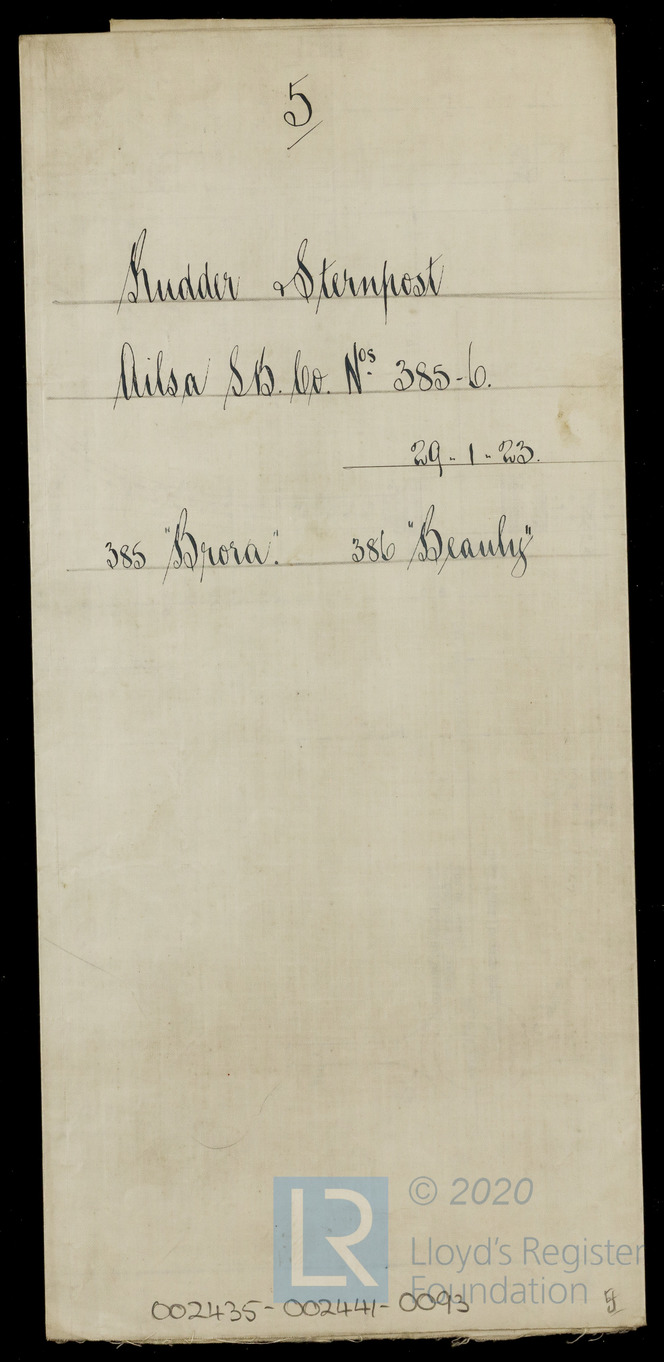 5
Rudder & Sternpost
Ailsa S.B. Co. Nos. 385-6.
29-1-23.
385 "Brora". 386 "Beauly"
LR
© 2020
Lloyd's Register
Foundation
002435-002441-0093
5